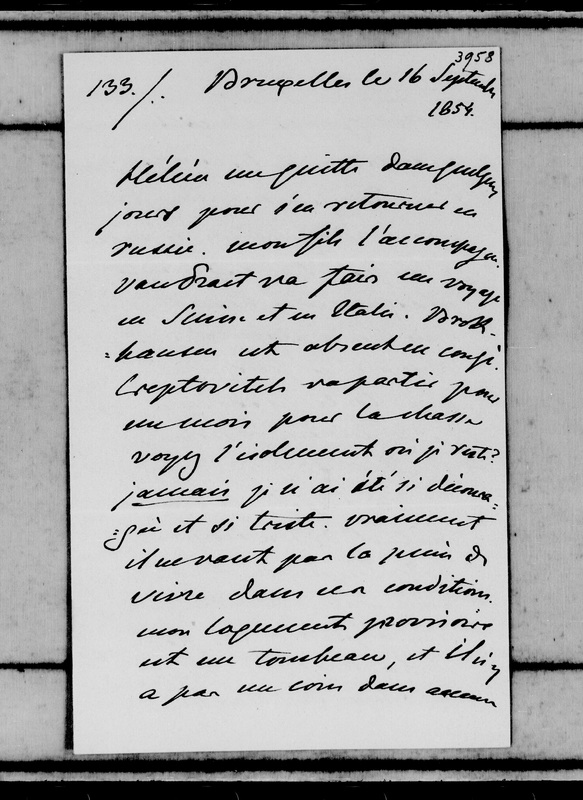 3958
133. /. Bruxelles le 16 Septembre
1854.
Hélène me quitte dans quelques
jours pour s'en retourner en
russie. mon fils l'accompagne.
va faire un voyage
en Suisse et en Italie. Brok-
=hausen est absent en congé.
Creptovitch va partir pour
un mois pour la chasse
voyez l'isolement où je reste?
jamais je n'ai été si découra-
=gée et si triste. vraiment
il ne vaut pas la peine de
vivre dans ces conditions.
mon logement provisoire
est un tombeau, et il n'y
a pas un coin dans aucun